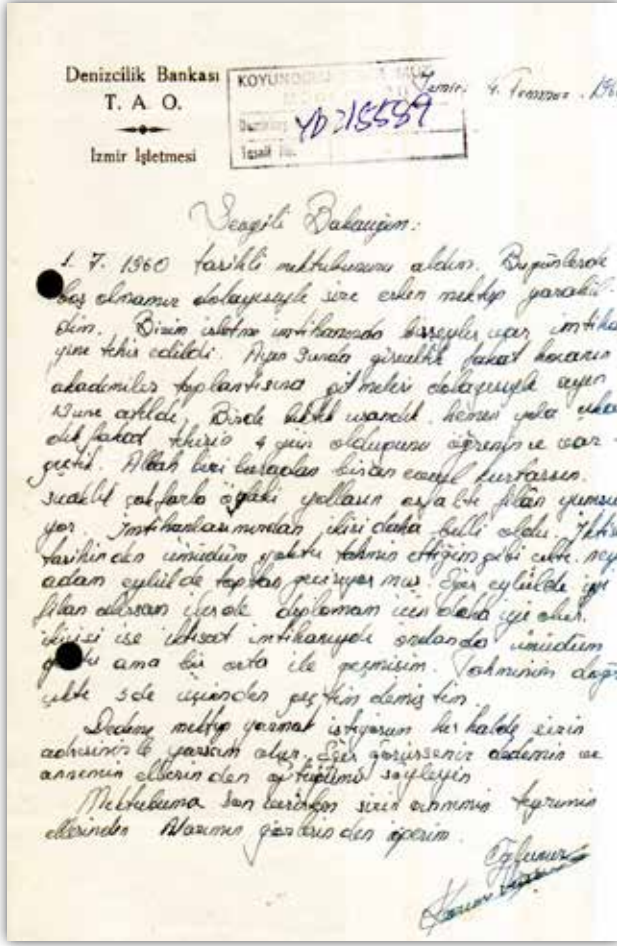 Denizcilik Bankası
T. A. O.
İzmir İşletmesi
KOYUNOĞLU
YD 218589
Tasnif No.
İzmir 4. Temmuz. 196
Sevgili Babacığım:
1. 7. 1960 tarihli mektubunuzu aldım. Bugünlerde
boş olmamız dolayısiyle size erken mektup yazabil
dim. Bizim işletme imtihanında birşeyler var imtiha
yine tehir edildi. Ayın 9unda girecektik fakat hocanın
akademiler toplantısına gitmeleri dolayısiyle ayın
13üne atıldı. Bizde bıktık usandık. hemen yola
dık fakat tehirin 4 gün olduğunu öğrenince vaz
geçtik. Allah bizi buradan bir an evvel kurtarsın.
Sıcaklık çok fazla öyleki yolların asfaltı filân yumuşu
yor. İmtihanlarımından ikisi daha belli oldu. İktis
tarihinden ümüdüm yoktu tahmin ettiğim gibi çıktı.
adam eylülde toptan geçiriyor muş. Eğer eylülde iyi
filan alırsam ilerde diplomam için daha iyi olur.
ikisi ise iktisat imtihanıydı ondanda ümüdüm
yoktu ama bir orta ile geçmişim. Tahminim doğru
çıktı 5 de üçünden geçtim demiştim.
Dedeme mektup yazmak istiyorum her halde sizin
adresinizle yazsam olur. Eğer görürseniz dedemin ve
annemin ellerinden öptüğümü söyleyin
Mektubuma son verirken sizin annemin teyzemin
ellerinden gözlerinden öperim.
Oğlunuz